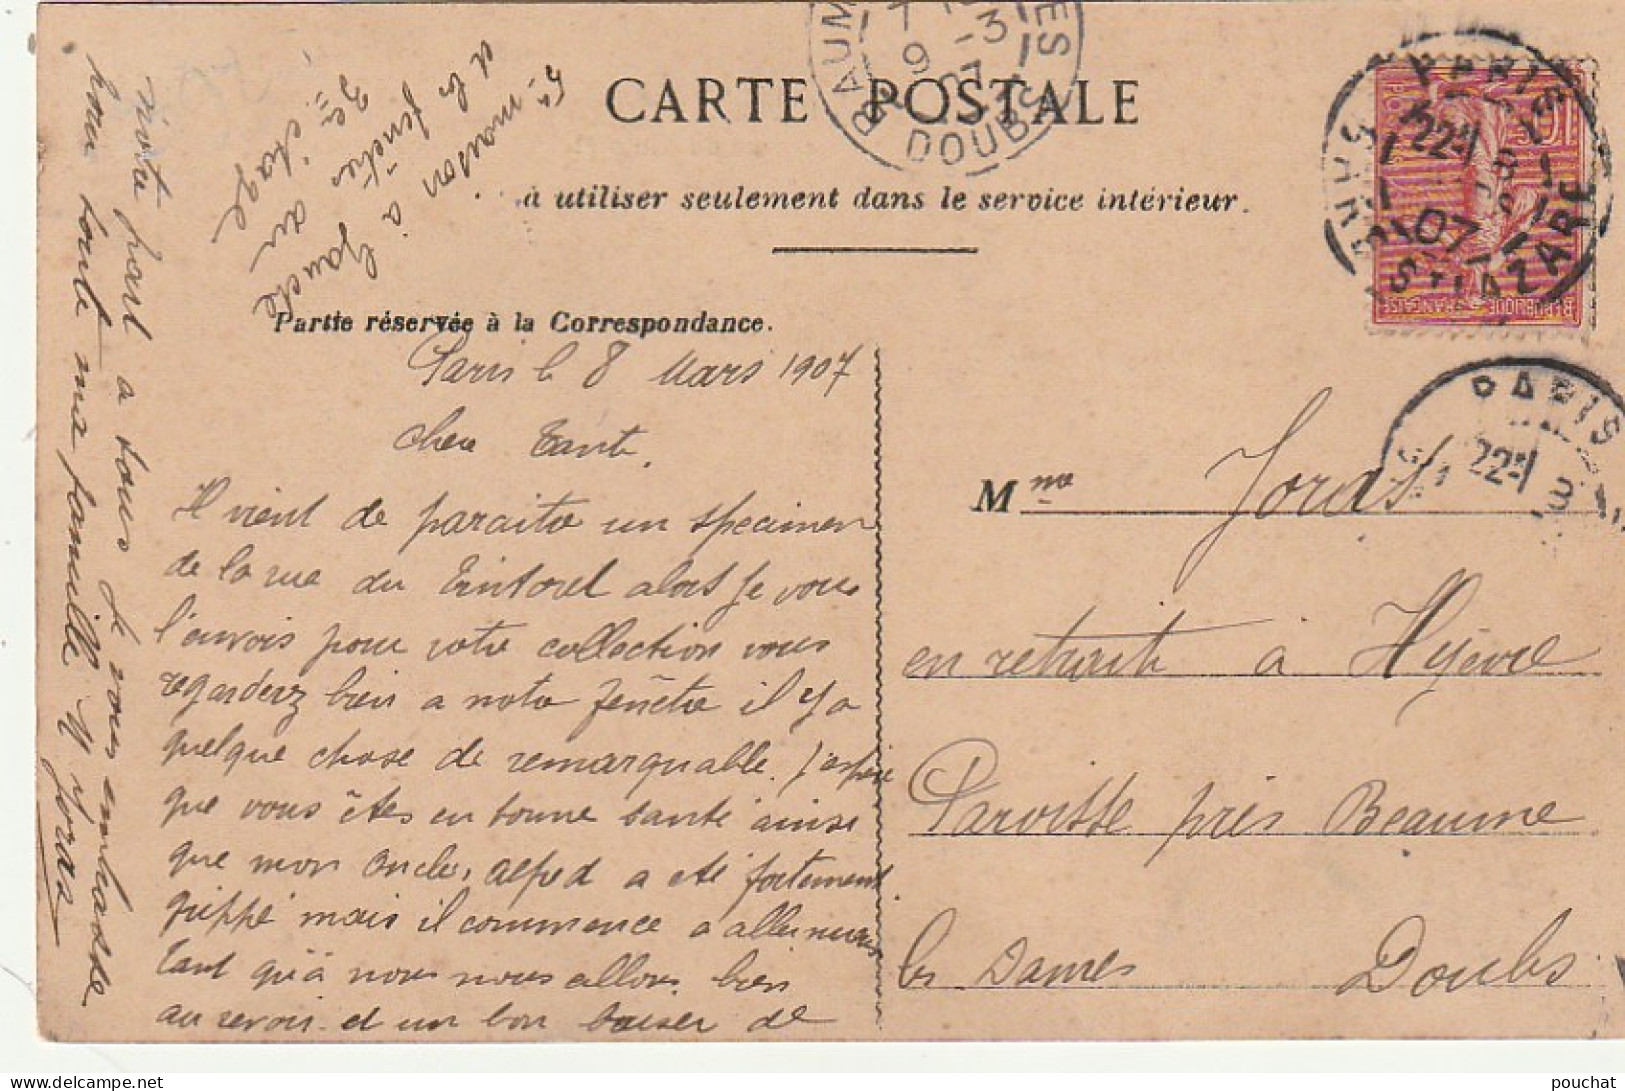 CARTE POSTALE
à utiliser seulement dans le service intérieur.
Partie réservée à la Correspondance.
Paris le 8 Mars 1907
chere Tante,
Il vient de paraitre un specimen
de la rue du Tintoret alors je vous
l'envois pour votre collection vous
regarderz bien a notre fenêtre il y a
quelque chose de remarquable. j'espère
que vous êtes en bonne santé ainsi
que mon oncle, alfred a été fortement
grippé mais il commence a aller mieux
Tant qu'à nous nous allons bien
au revoir et un bon baiser de
notre part a tous je vous embrasse
pour toute ma famille
Joras
1re maison à gauche
et la fenêtre au
3e étage
Mme Joras
en retraite à Hyèvre
Paroisse près Beaume
les Dames Doubs
PARIS
22
8
07
ST LAZARE
REPUBLIQUE FRANCAISE
10
POSTES
BAUM ES
9
3
07
DOUBS
PARIS
22
8
pouchat